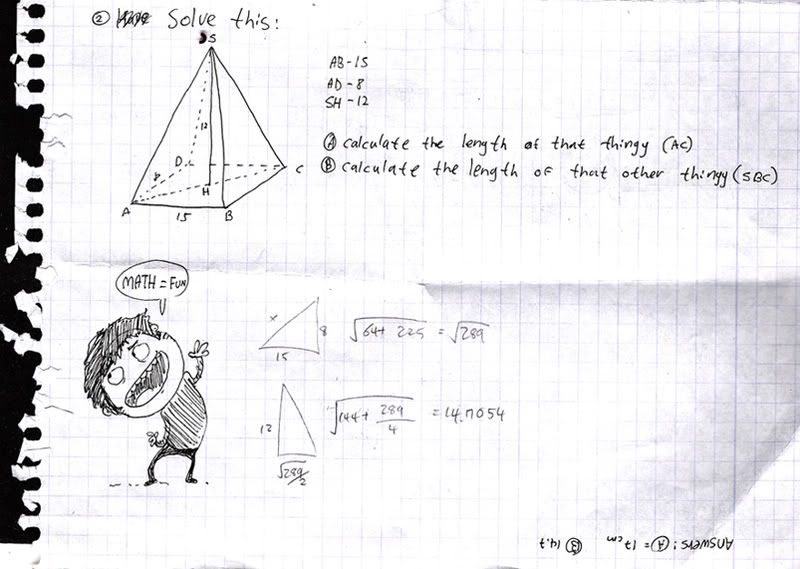 ② Solve this:
S
AB-15
AD-8
SH-12
12
Ⓐ calculate the length of that thingy (AC)
Ⓑ calculate the length of that other thingy (SBC)
D
C
8
H
A
15
B
MATH = FUN
x
8
15
√64+ 225 = √289
12
√144 + 289/4 = 14.7054
√289/2
Answers: Ⓐ = 17cm Ⓑ 14.7